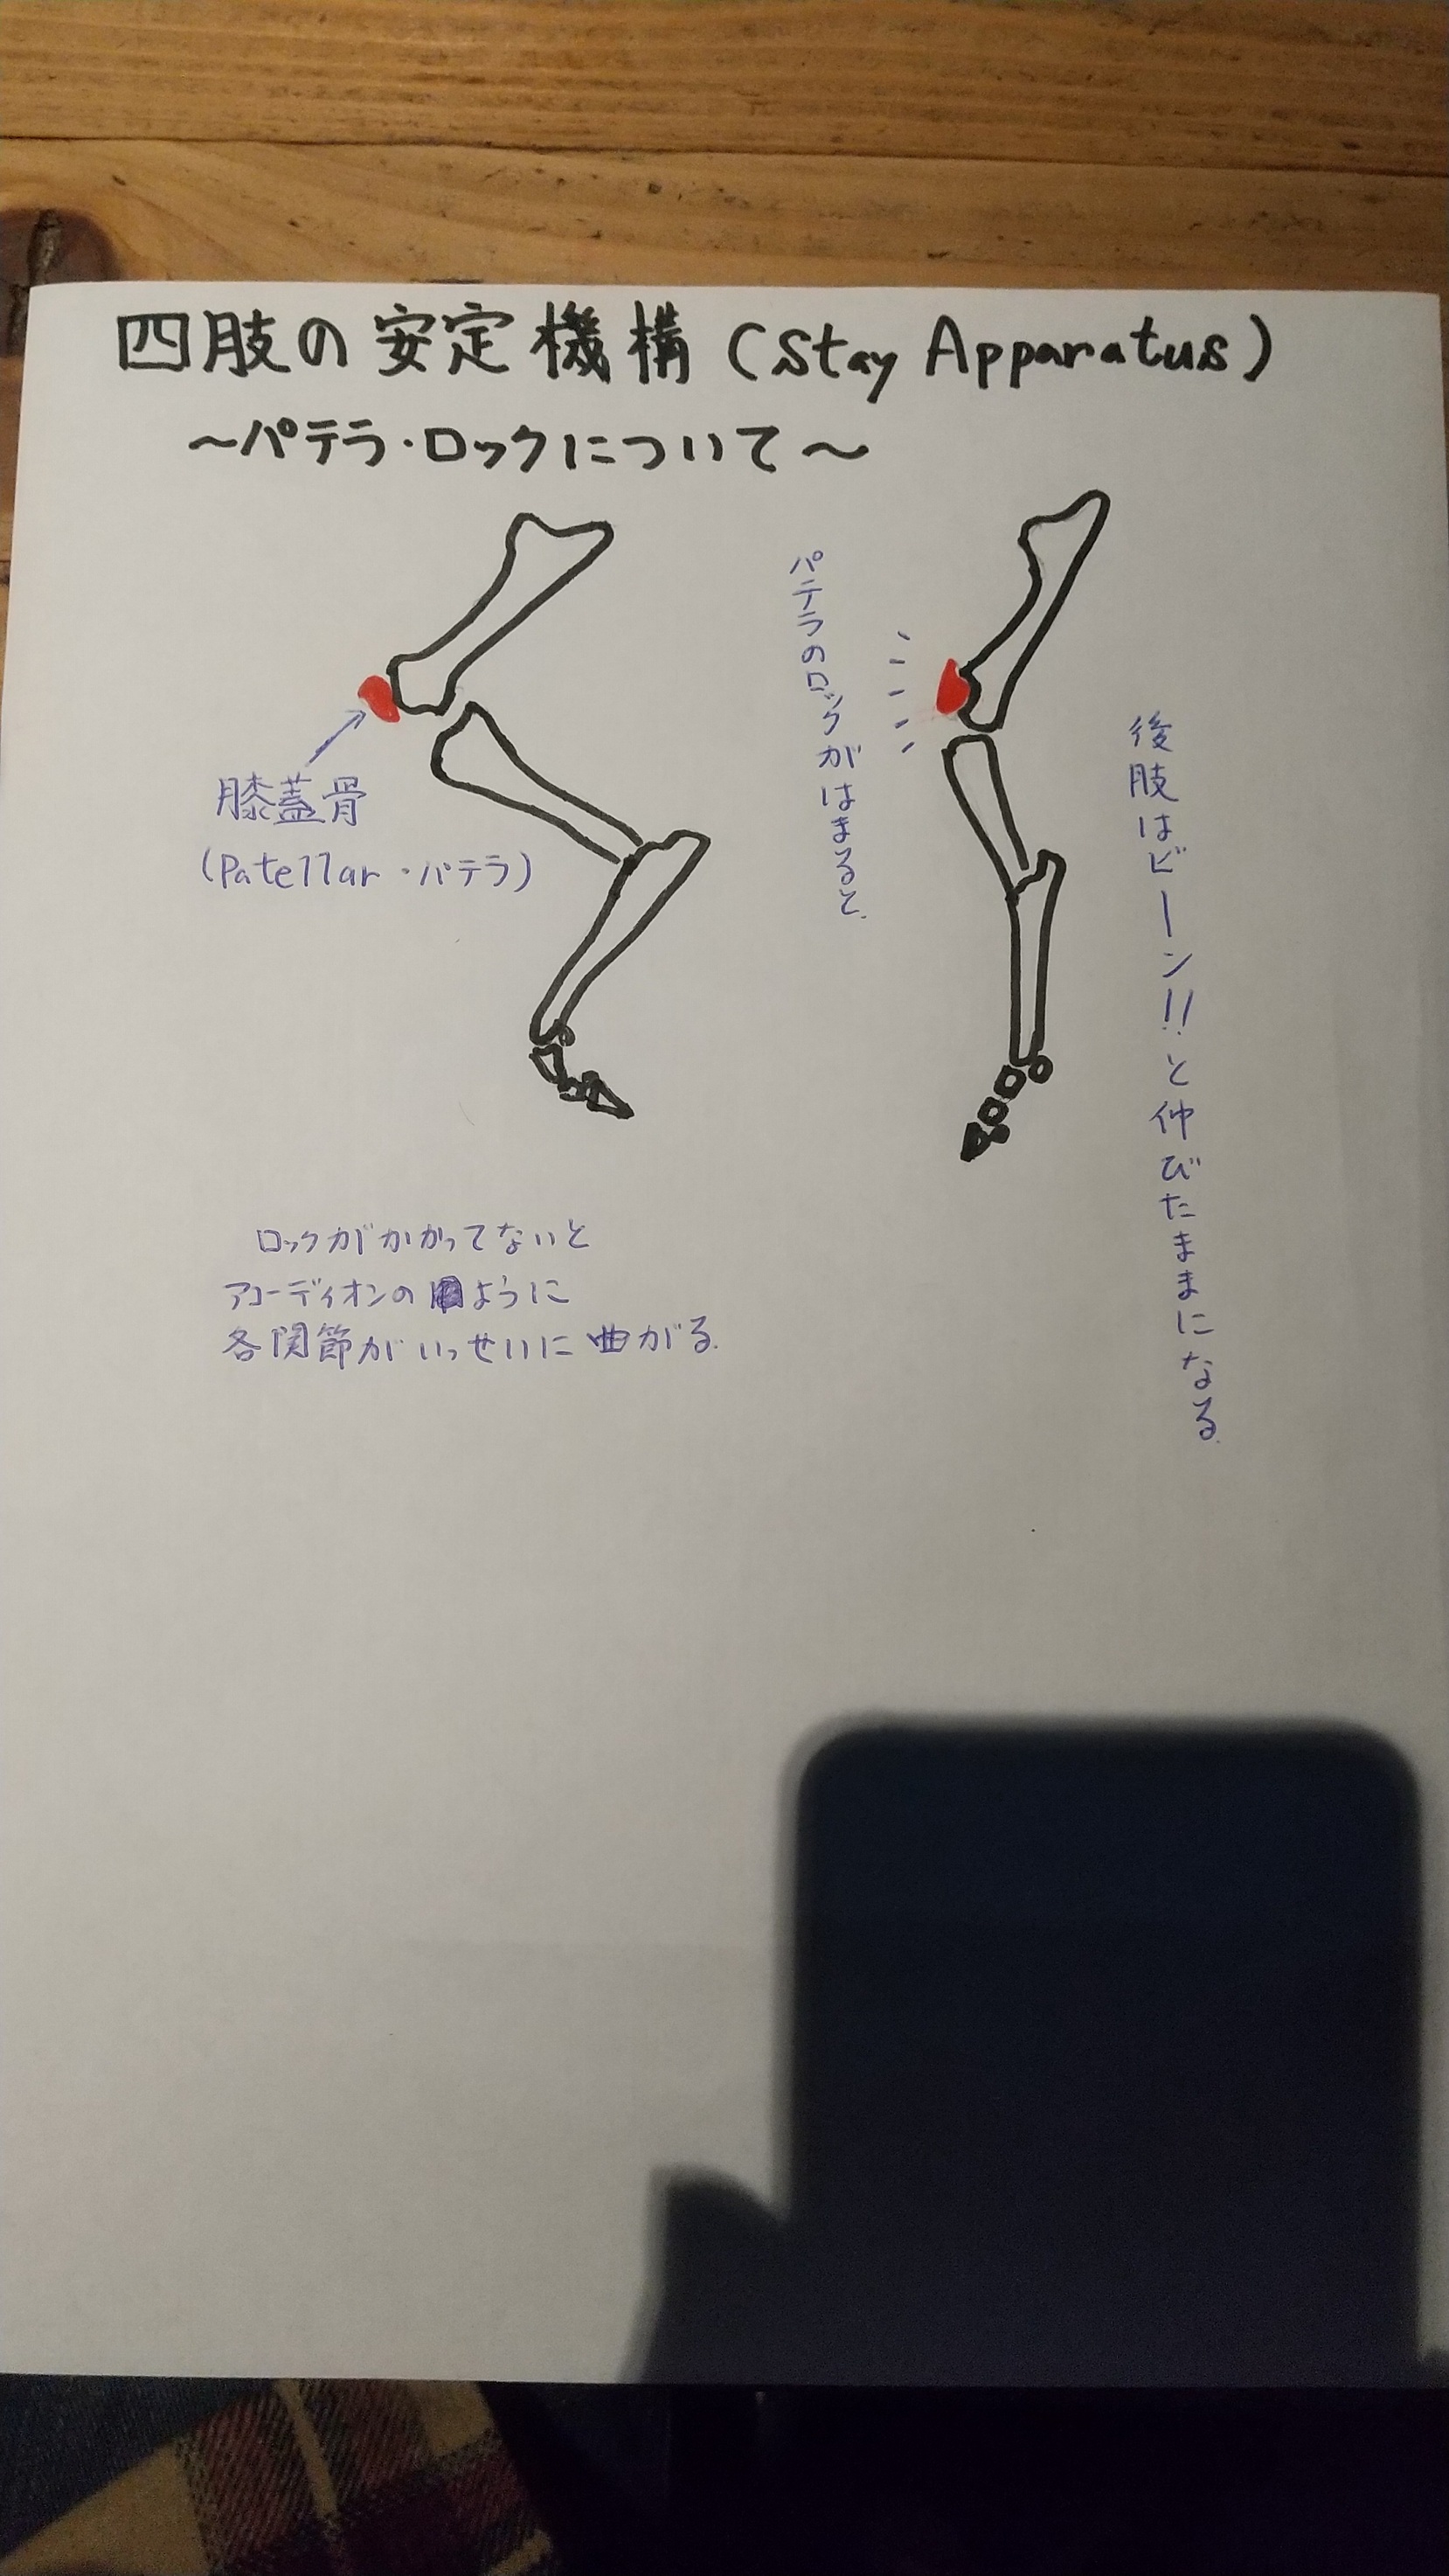 四肢の安定機構(Stay Apparatus)
～パテラ・ロックについて～
膝蓋骨
(Patellar・パテラ)
ロックがかかってないと
アコーディオンのように
各関節がいっせいに曲がる.
パテラのロックがはまると.
後肢はビーン!!と伸びたままになる.